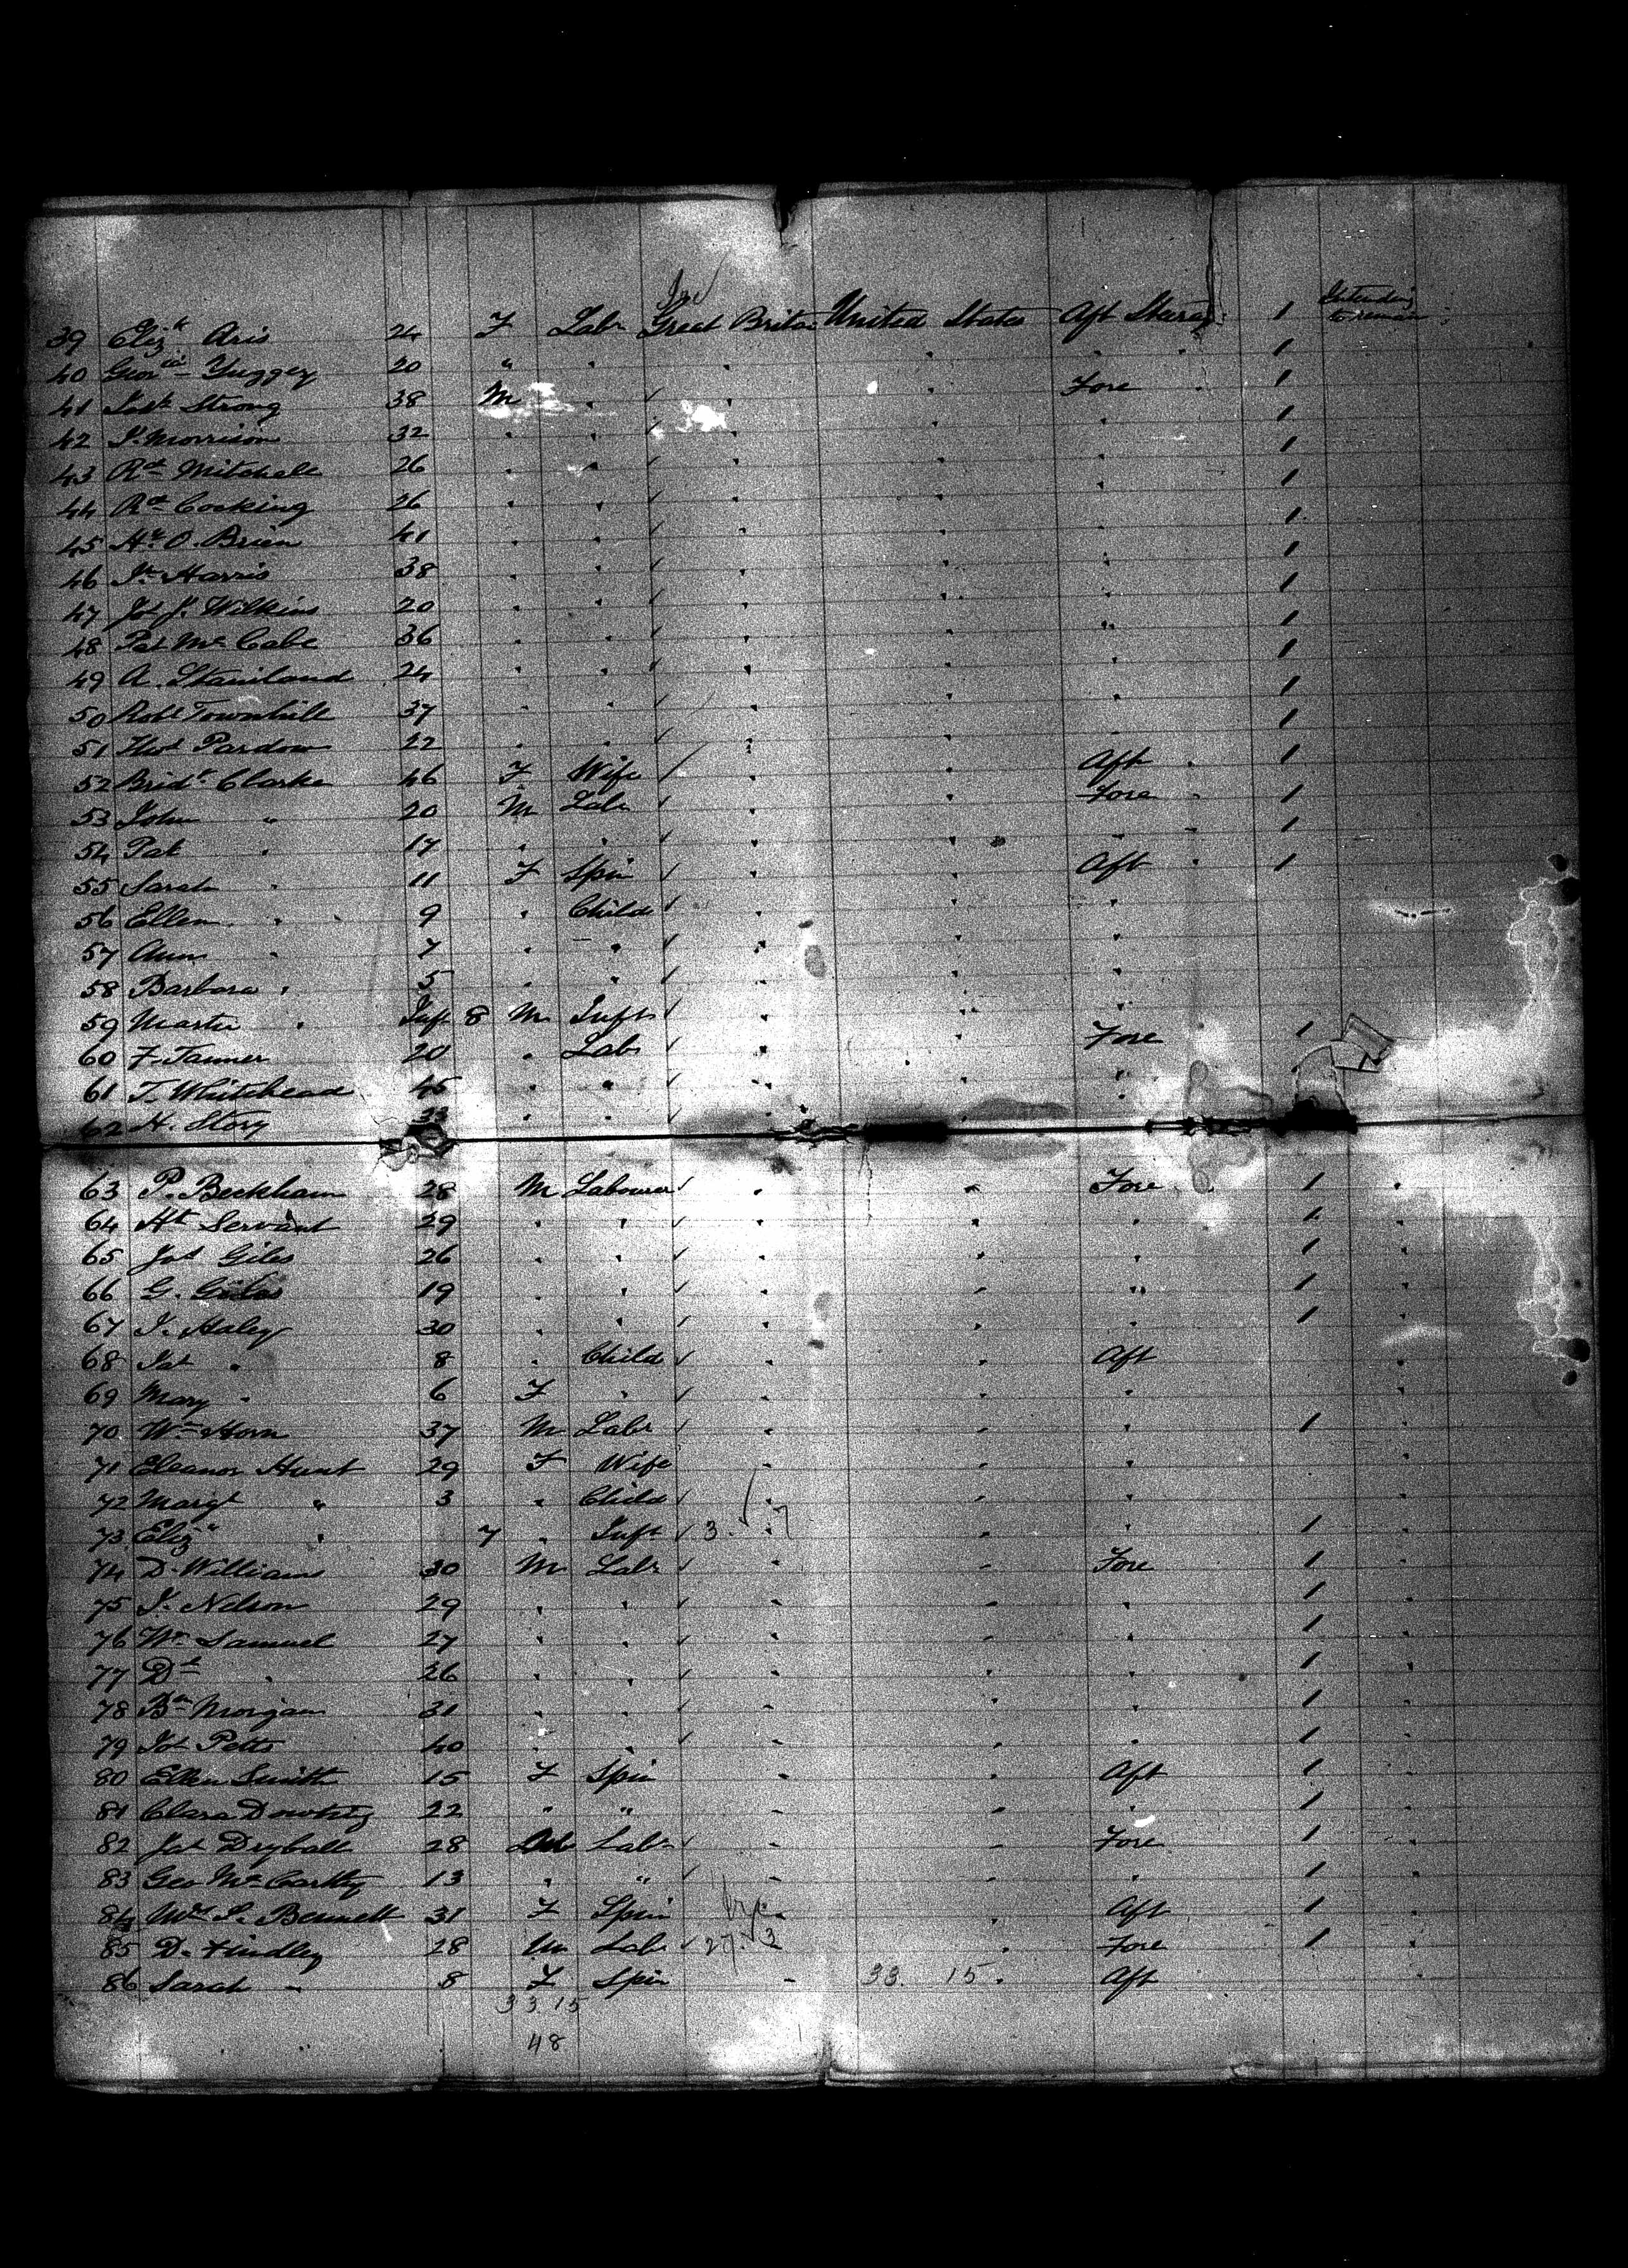 Ire
39 Eliz'h Aris 24 F Labr Great Britn United States Aft Steerag: 1 Intending to remain
40 20 " . . . . . 1
41 Strong 38 M . . . Fore . 1
42 J. Morrison 32 . . . . . 1
43 Rd Mitchell 26 . . . . . 1
44 Rd Cocking 26 . . . . . 1
45 Hy O. Brien 41 . . . . . 1
46 Jn Harris 38 . . . . . 1
47 Jas J. Wilkins 20 . . . . . 1
48 Pat McCabe 36 . . . . " 1
49 A. Staniland 24 . . . . . 1
50 Robt Townhill 37 . . . . . 1
51 Thos Pardow 22 . . . . . 1
52 Bridt Clarke 46 F Wife . . Aft . 1
53 John " 20 M Labr . . Fore . 1
54 Pat . 17 . . . . . . 1
55 Sarah . 11 F Spin . . Aft . 1
56 Ellen . 9 . Child . . .
57 Ann . 7 . . . . .
58 Barbara . 5 . . . . .
59 Martin . Inft 8 M Inft . . .
60 F. Tanner 20 . Labr . . Fore 1
61 T. Whitehead 45 . . . . .
62 H. Story 23 . .
63 P. Beckham 28 M Labourer . . Fore . 1 .
64 Ht Servant 29 . . . . . 1 .
65 Jas Giles 26 . . . . . 1 .
66 G. Giles 19 . . . . " 1 .
67 J. Haley 30 . . . . . 1
68 . 8 . Child . . Aft .
69 Mary . 6 F . . . . .
70 Wm Horn 37 M Labr . . . 1 .
71 Eleanor Hunt 29 F Wife . . . .
72 Margt " 3 . Child . . . .
73 Eliz'h . 7 . Inft 3. .7 . . 1 .
74 D. Williams 30 M Labr . . Fore 1 .
75 J. Nelson 29 . . . . . 1 .
76 Wm Samuel 27 . . . . . 1 .
77 . 26 . . . . . 1 .
78 Bn Morgan 31 . . . . . 1 .
79 Jos Petts 40 . . . . . 1 .
80 Ellen Smith 15 F Spin . . Aft 1 .
81 Clara 22 " " . . . 1 .
82 Jas Dryball 28 Labr . . Fore 1 .
83 Geo McCarthy 13 . " . . . 1 .
84 Bennett 31 F Spin . . Aft 1 .
85 D. Findley 28 M Labr 27. 3 . Fore 1 .
86 Sarah " 8 F Spin . 33. 15. Aft .
33 15
48